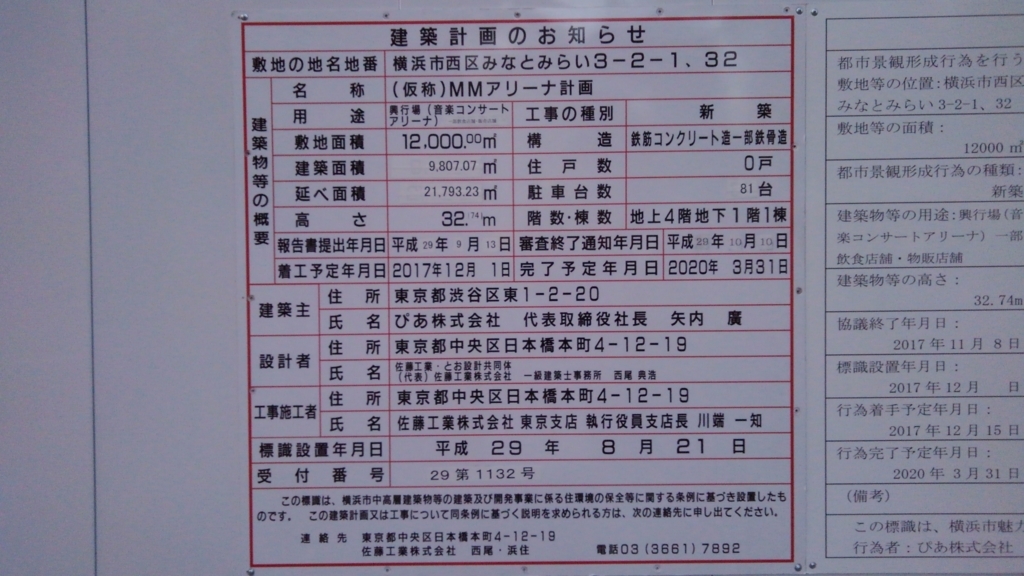 建築計画のお知らせ
敷地の地名地番 横浜市西区みなとみらい3-2-1、32
建築物等の概要
名称 (仮称)MMアリーナ計画
用途 興行場(音楽コンサートアリーナ) 工事の種別 新築
敷地面積 12,000.00㎡ 構造 鉄筋コンクリート造一部鉄骨造
建築面積 9,807.07㎡ 住戸数 0戸
延べ面積 21,793.23㎡ 駐車台数 81台
高さ 32.74m 階数・棟数 地上4階地下1階1棟
報告書提出年月日 平成29年9月13日 審査終了通知年月日 平成29年10月10日
着工予定年月日 2017年12月1日 完了予定年月日 2020年3月31日
建築主 住所 東京都渋谷区東1-2-20
氏名 ぴあ株式会社 代表取締役社長 矢内 廣
設計者 住所 東京都中央区日本橋本町4-12-19
氏名 佐藤工業・とお設計共同体
(代表)佐藤工業株式会社 一級建築士事務所 西尾 典浩
工事施工者 住所 東京都中央区日本橋本町4-12-19
氏名 佐藤工業株式会社 東京支店 執行役員支店長 川端 一知
標識設置年月日 平成29年8月21日
受付番号 29第1132号
この標識は、横浜市中高層建築物等の建築及び開発事業に係る住環境の保全等に関する条例に基づき設置したも
のです。 この建築計画又は工事について同条例に基づく説明を求められる方は、次の連絡先に申し出てください。
連絡先 東京都中央区日本橋本町4-12-19
佐藤工業株式会社 西尾・浜住 電話03(3661)7892
都市景観形成行為を行う
敷地等の位置:横浜市西区
みなとみらい3-2-1、32
敷地等の面積:
12000㎡
都市景観形成行為の種類:
新築
建築物等の用途:興行場(音
楽コンサートアリーナ)一部
飲食店舗・物販店舗
建築物等の高さ:
32.74m
協議終了年月日:
2017年11月8日
標識設置年月日:
2017年12月 日
行為着手予定年月日:
2017年12月15日
行為完了予定年月日:
2020年3月31日
(備考)
この標識は、横浜市魅力
行為者:ぴあ株式会社